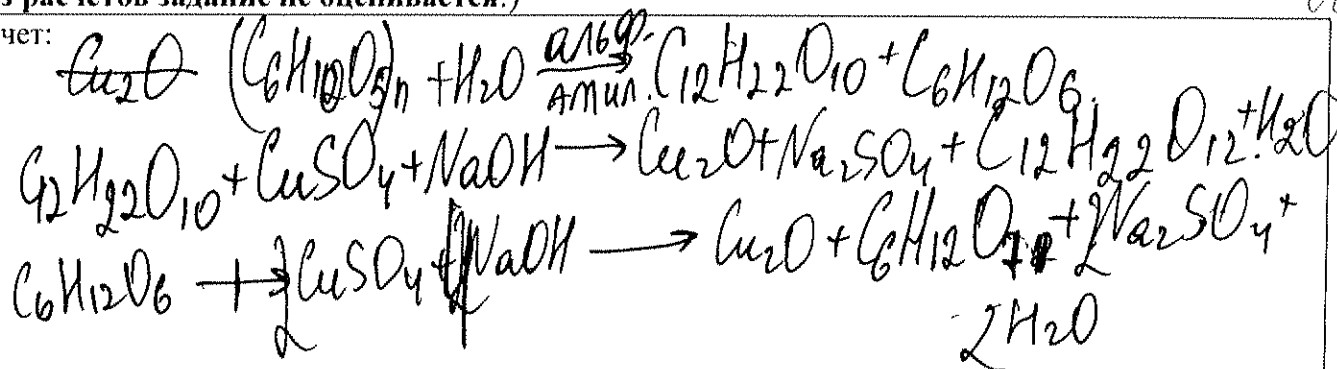 з расчетов задание не оценивается.)
чет:
Cu₂O (C₆H₁₀O₅)n + H₂O альф. амил. → C₁₂H₂₂O₁₀ + C₆H₁₂O₆.
C₁₂H₂₂O₁₀ + CuSO₄ + NaOH → Cu₂O + Na₂SO₄ + C₁₂H₂₂O₁₂ + H₂O
C₆H₁₂O₆ + 2CuSO₄ + 4NaOH → Cu₂O + C₆H₁₂O₇ + 2Na₂SO₄ +
2H₂O